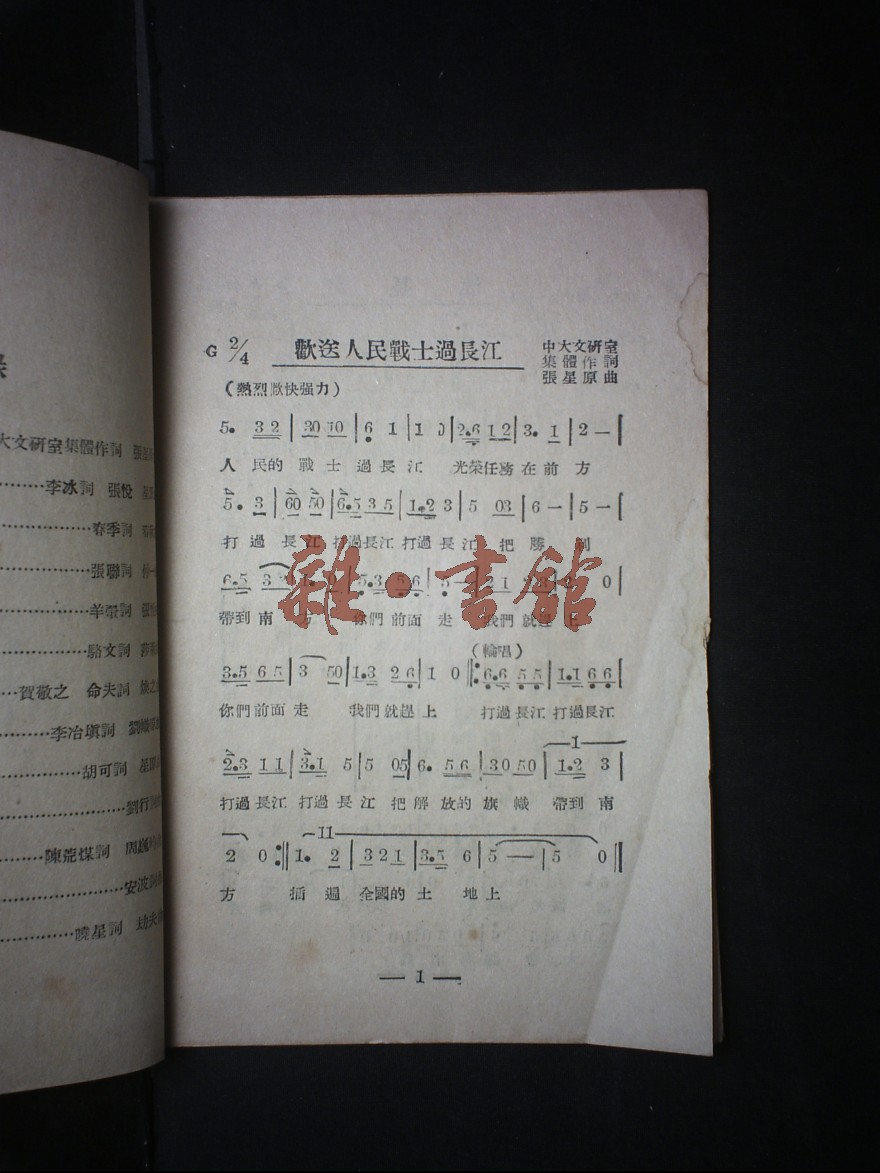 大文研室集體作詞 張
李冰詞 張悅
春季詞
張聯詞
羊燈詞 張
駱文詞
賀敬之 命夫詞 煥之
李冶塡詞 劉熾
胡可詞 星
劉行詞
陳荒煤詞
安波詞
曉星詞 劫夫
G 2/4 歡送人民戰士過長江 中大文研室
集體作詞
張星原曲
(熱烈歡快强力)
5. 3 2 | 30 10 | 6 1 | 1 0 | 2.6 1 2 | 3. 1 | 2 — |
人民的 戰士 過長江 光榮任務在前方
5. 3 | 60 50 | 6.5 3 5 | 1.2 3 | 5 03 | 6 — | 5 — |
打過長江 打過長江 打過長江 把勝利
雜·書館
帶到南方 你們前面走 我們就趕上
(輪唱)
3.5 6 5 | 3 50 | 1.3 2 6 | 1 0 |: 6.6 5 5 | 1.1 6 6 |
你們前面走 我們就趕上 打過長江 打過長江
1
2.3 1 1 | 3.1 5 | 5 05 | 6. 5 6 | 30 50 | 1.2 3 |
打過長江 打過長江 把解放的旗幟 帶到南
II
2 0 :| 1. 2 | 3 2 1 | 3.5 6 | 5 — | 5 0 ||
方 插遍 全國的土地上
— 1 —